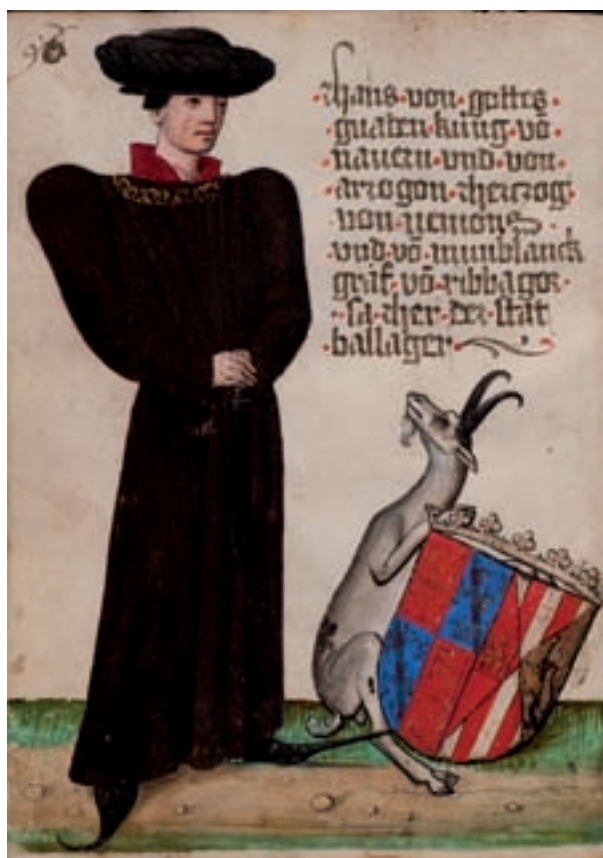 Hans · von · gottes ·
gnaden · kúng · võ
nauern · vnd · von ·
arrogon · herczog ·
von · nemons
vnd · võ · munblanck
graf · võ · ribbagor
sa · her · der · stat
· ballager ·